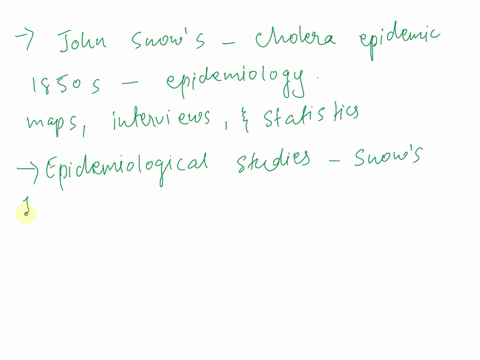 → John Snow's - Cholera epidemic
1850s - epidemiology.
maps, interviews, & statistics
→ Epidemiological studies - Snow's